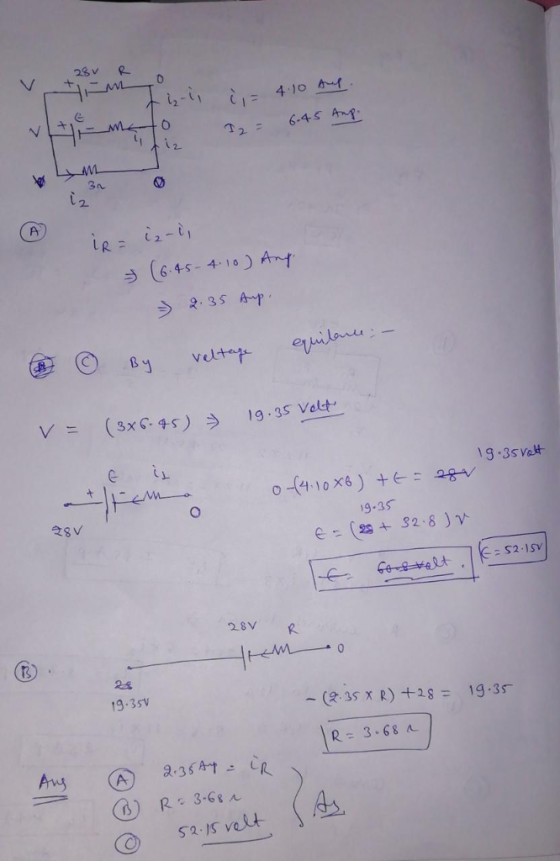 28V R
V + - 0
i2-i1 i1 = 4.10 Amp.
V + E - 0 I2 = 6.45 Amp.
i1 i2
3Ω
i2
(A) iR = i2-i1
⇒ (6.45-4.10) Amp.
⇒ 2.35 Amp.
(C) By voltage :-
V = (3x6.45) ⇒ 19.35 Volt
E i1 19.35 Volt
+ - 0-(4.10x8) + E = 28V
28V 0 19.35
E = (28 + 32.8) V
E = 60.8 volt. E = 52.15V
28V R
(B). 0
28
19.35V -(2.35 x R) +28 = 19.35
R = 3.68 Ω
Ans (A) 2.35 Ap = iR
(B) R = 3.68 Ω } As
(C) 52.15 volt